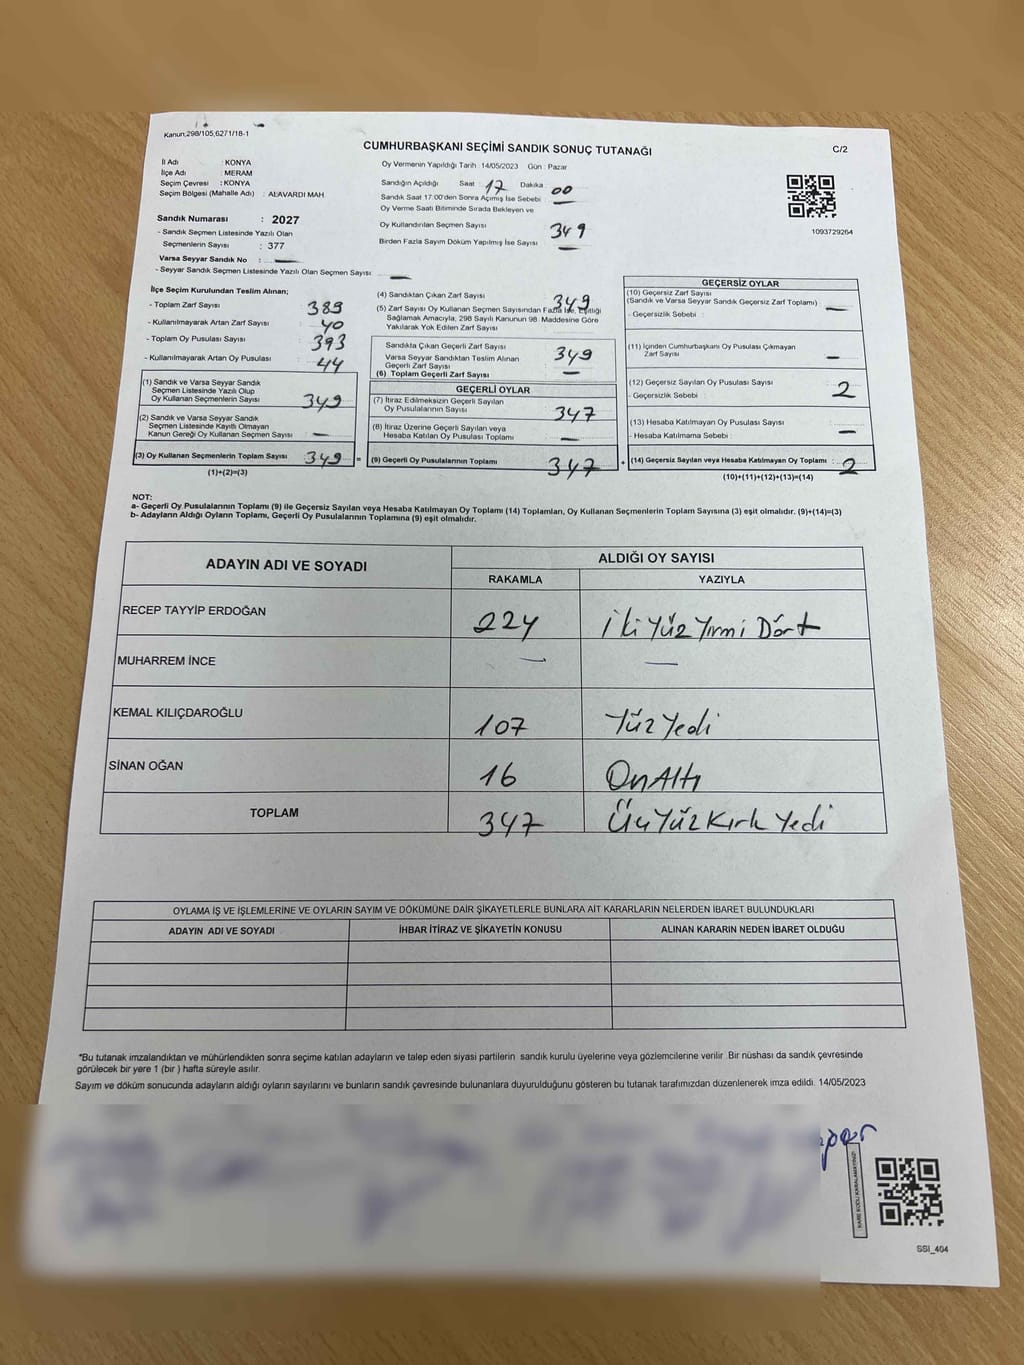 Kanun;298/105,6271/18-1
CUMHURBAŞKANI SEÇİMİ SANDIK SONUÇ TUTANAĞI
C/2
İl Adı : KONYA
İlçe Adı : MERAM
Seçim Çevresi : KONYA
Seçim Bölgesi (Mahalle Adı) : ALAVARDI MAH
Oy Vermenin Yapıldığı Tarih :14/05/2023 Gün : Pazar
Sandığın Açıldığı Saat : 17 Dakika : 00
Sandık Saat 17:00'den Sonra Açımış İse Sebebi —
Oy Verme Saati Bitiminde Sırada Bekleyen ve
Oy Kullandırılan Seçmen Sayısı 349
Birden Fazla Sayım Döküm Yapılmış İse Sayısı —
1093729264
Sandık Numarası : 2027
- Sandık Seçmen Listesinde Yazılı Olan
Seçmenlerin Sayısı : 377
Varsa Seyyar Sandık No : —
- Seyyar Sandık Seçmen Listesinde Yazılı Olan Seçmen Sayısı: —
İlçe Seçim Kurulundan Teslim Alınan;
- Toplam Zarf Sayısı 389
- Kullanılmayarak Artan Zarf Sayısı : 40
- Toplam Oy Pusulası Sayısı : 393
- Kullanılmayarak Artan Oy Pusulası : 44
(1) Sandık ve Varsa Seyyar Sandık
Seçmen Listesinde Yazılı Olup
Oy Kullanan Seçmenlerin Sayısı : 349
(2) Sandık ve Varsa Seyyar Sandık
Seçmen Listesinde Kayıtlı Olmayan
Kanun Gereği Oy Kullanan Seçmen Sayısı : —
(3) Oy Kullanan Seçmenlerin Toplam Sayısı : 349 =
(1)+(2)=(3)
(4) Sandıktan Çıkan Zarf Sayısı 349
(5) Zarf Sayısı Oy Kullanan Seçmen Sayısından Fazla İse, Eşitliği
Sağlamak Amacıyla, 298 Sayılı Kanunun 98. Maddesine Göre
Yakılarak Yok Edilen Zarf Sayısı :
Sandıkta Çıkan Geçerli Zarf Sayısı 349
Varsa Seyyar Sandıktan Teslim Alınan
Geçerli Zarf Sayısı :
(6) Toplam Geçerli Zarf Sayısı —
GEÇERLİ OYLAR
(7) İtiraz Edilmeksizin Geçerli Sayılan
Oy Pusulalarının Sayısı 347
(8) İtiraz Üzerine Geçerli Sayılan veya
Hesaba Katılan Oy Pusulası Toplamı : —
(9) Geçerli Oy Pusulalarının Toplamı 347 +
GEÇERSİZ OYLAR
(10) Geçersiz Zarf Sayısı
(Sandık ve Varsa Seyyar Sandık Geçersiz Zarf Toplamı) : —
- Geçersizlik Sebebi :
(11) İçinden Cumhurbaşkanı Oy Pusulası Çıkmayan
Zarf Sayısı : —
(12) Geçersiz Sayılan Oy Pusulası Sayısı : 2
- Geçersizlik Sebebi :
(13) Hesaba Katılmayan Oy Pusulası Sayısı : —
- Hesaba Katılmama Sebebi :
(14) Geçersiz Sayılan veya Hesaba Katılmayan Oy Toplamı : 2
(10)+(11)+(12)+(13)=(14)
NOT:
a- Geçerli Oy Pusulalarının Toplamı (9) ile Geçersiz Sayılan veya Hesaba Katılmayan Oy Toplamı (14) Toplamları, Oy Kullanan Seçmenlerin Toplam Sayısına (3) eşit olmalıdır. (9)+(14)=(3)
b- Adayların Aldığı Oyların Toplamı, Geçerli Oy Pusulalarının Toplamına (9) eşit olmalıdır.
ADAYIN ADI VE SOYADI
ALDIĞI OY SAYISI
RAKAMLA YAZIYLA
RECEP TAYYİP ERDOĞAN 224 İki Yüz Yirmi Dört
MUHARREM İNCE — —
KEMAL KILIÇDAROĞLU 107 Yüz Yedi
SİNAN OĞAN 16 On Altı
TOPLAM 347 Üç Yüz Kırk Yedi
OYLAMA İŞ VE İŞLEMLERİNE VE OYLARIN SAYIM VE DÖKÜMÜNE DAİR ŞİKAYETLERLE BUNLARA AİT KARARLARIN NELERDEN İBARET BULUNDUKLARI
ADAYIN ADI VE SOYADI İHBAR İTİRAZ VE ŞİKAYETİN KONUSU ALINAN KARARIN NEDEN İBARET OLDUĞU
*Bu tutanak imzalandıktan ve mühürlendikten sonra seçime katılan adayların ve talep eden siyasi partilerin sandık kurulu üyelerine veya gözlemcilerine verilir .Bir nüshası da sandık çevresinde
görülecek bir yere 1 (bir ) hafta süreyle asılır.
Sayım ve döküm sonucunda adayların aldığı oyların sayılarını ve bunların sandık çevresinde bulunanlara duyurulduğunu gösteren bu tutanak tarafımızdan düzenlenerek imza edildi. 14/05/2023
KARE KODU KARALAMAYINIZ!
SSI_404